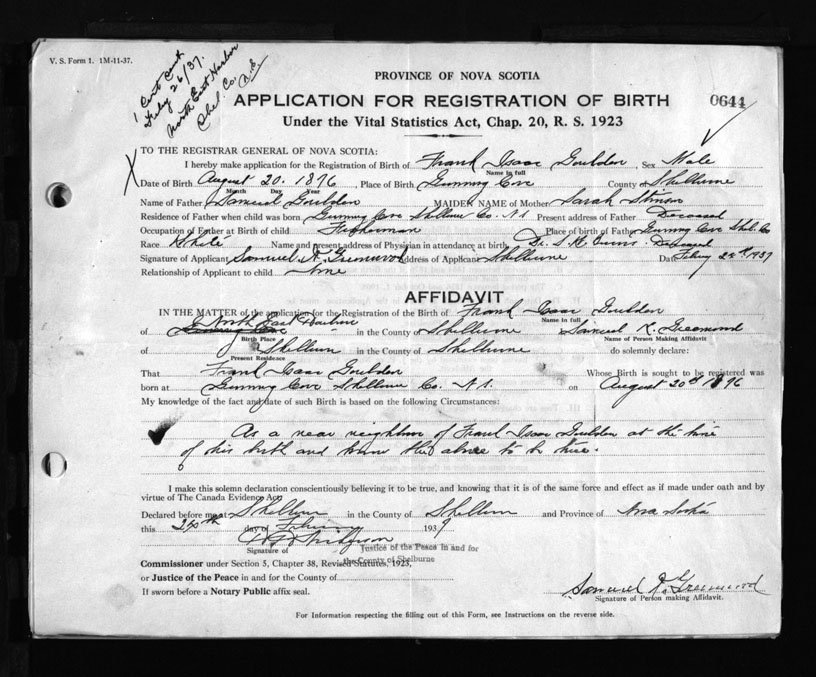 V. S. Form 1. 1M-11-37.
1 Cert
26/37.
North East Harbor
Shel Co. N.S.
PROVINCE OF NOVA SCOTIA
APPLICATION FOR REGISTRATION OF BIRTH
0644
Under the Vital Statistics Act, Chap. 20, R. S. 1923
TO THE REGISTRAR GENERAL OF NOVA SCOTIA:
I hereby make application for the Registration of Birth of Frank Isaac Goulden, Sex Male
Name in full
Date of Birth August 20. 1896, Place of Birth Gunning Cove County of Shelburne
Month Day Year
Name of Father Samuel Goulden MAIDEN NAME of Mother Sarah Stinson
Residence of Father when child was born Gunning Cove Shelburne Co. N.S Present address of Father Deceased
Occupation of Father at Birth of child Fisherman Place of birth of Father Gunning Cove Shel. Co
Race White Name and present address of Physician in attendance at birth Dr. Deceased
Signature of Applicant Samuel Greenwood Address of Applicant Shelburne Date 24th 1937
Relationship of Applicant to child None
AFFIDAVIT
IN THE MATTER of the application for the Registration of Birth of Frank Isaac Goulden
Name in full
of North East Harbor Gunning Cove in the County of Shelburne Samuel Greenwood
Birth Place Name of Person Making Affidavit
of Shelburne in the County of Shelburne do solemnly declare:
Present Residence
That Frank Isaac Goulden Whose Birth is sought to be registered was
born at Gunning Cove Shelburne Co. N.S. on August 20th 1896
My knowledge of the fact and date of such Birth is based on the following Circumstances:
As a near neighbor of Frank Isaac Goulden at the time
of his birth and know the above to be true.
I make this solemn declaration conscientiously believing it to be true, and knowing that it is of the same force and effect as if made under oath and by
virtue of The Canada Evidence Act.
Declared before me at Shelburne in the County of Shelburne and Province of Nova Scotia
this day of February 193
Signature of Justice of the Peace in and for
the County of Shelburne
Commissioner under Section 5, Chapter 38, Revised Statutes, 1923,
or Justice of the Peace in and for the County of
If sworn before a Notary Public affix seal.
Samuel Greenwood
Signature of Person making Affidavit.
For Information respecting the filling out of this Form, see Instructions on the reverse side.